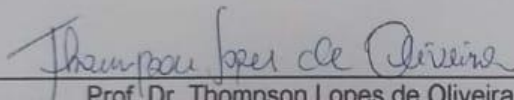 Thompson Lopes de Oliveira
Prof. Dr. Thompson Lopes de Oliveira